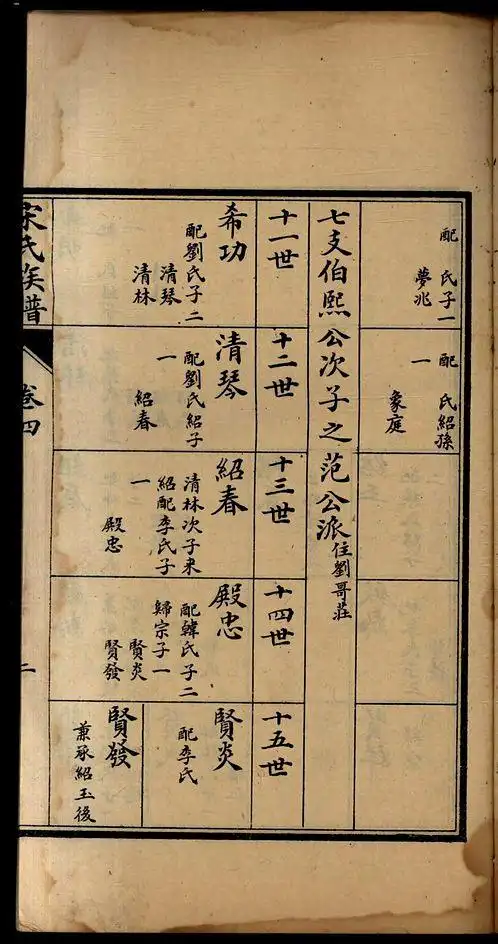 配 氏子一
夢兆
配 氏紹孫
一
象庭
七支伯熙公次子之范公派住劉哥莊
十一世
希功
配劉氏子二
清琴
清林
十二世
清琴
配劉氏紹子
一
紹春
十三世
紹春
清林次子來
紹配李氏子
一
殿忠
十四世
殿忠
配韓氏子二
歸宗子一
賢炎
賢發
十五世
賢炎
配李氏
賢發
兼承紹玉後
宋氏族譜
卷四
二